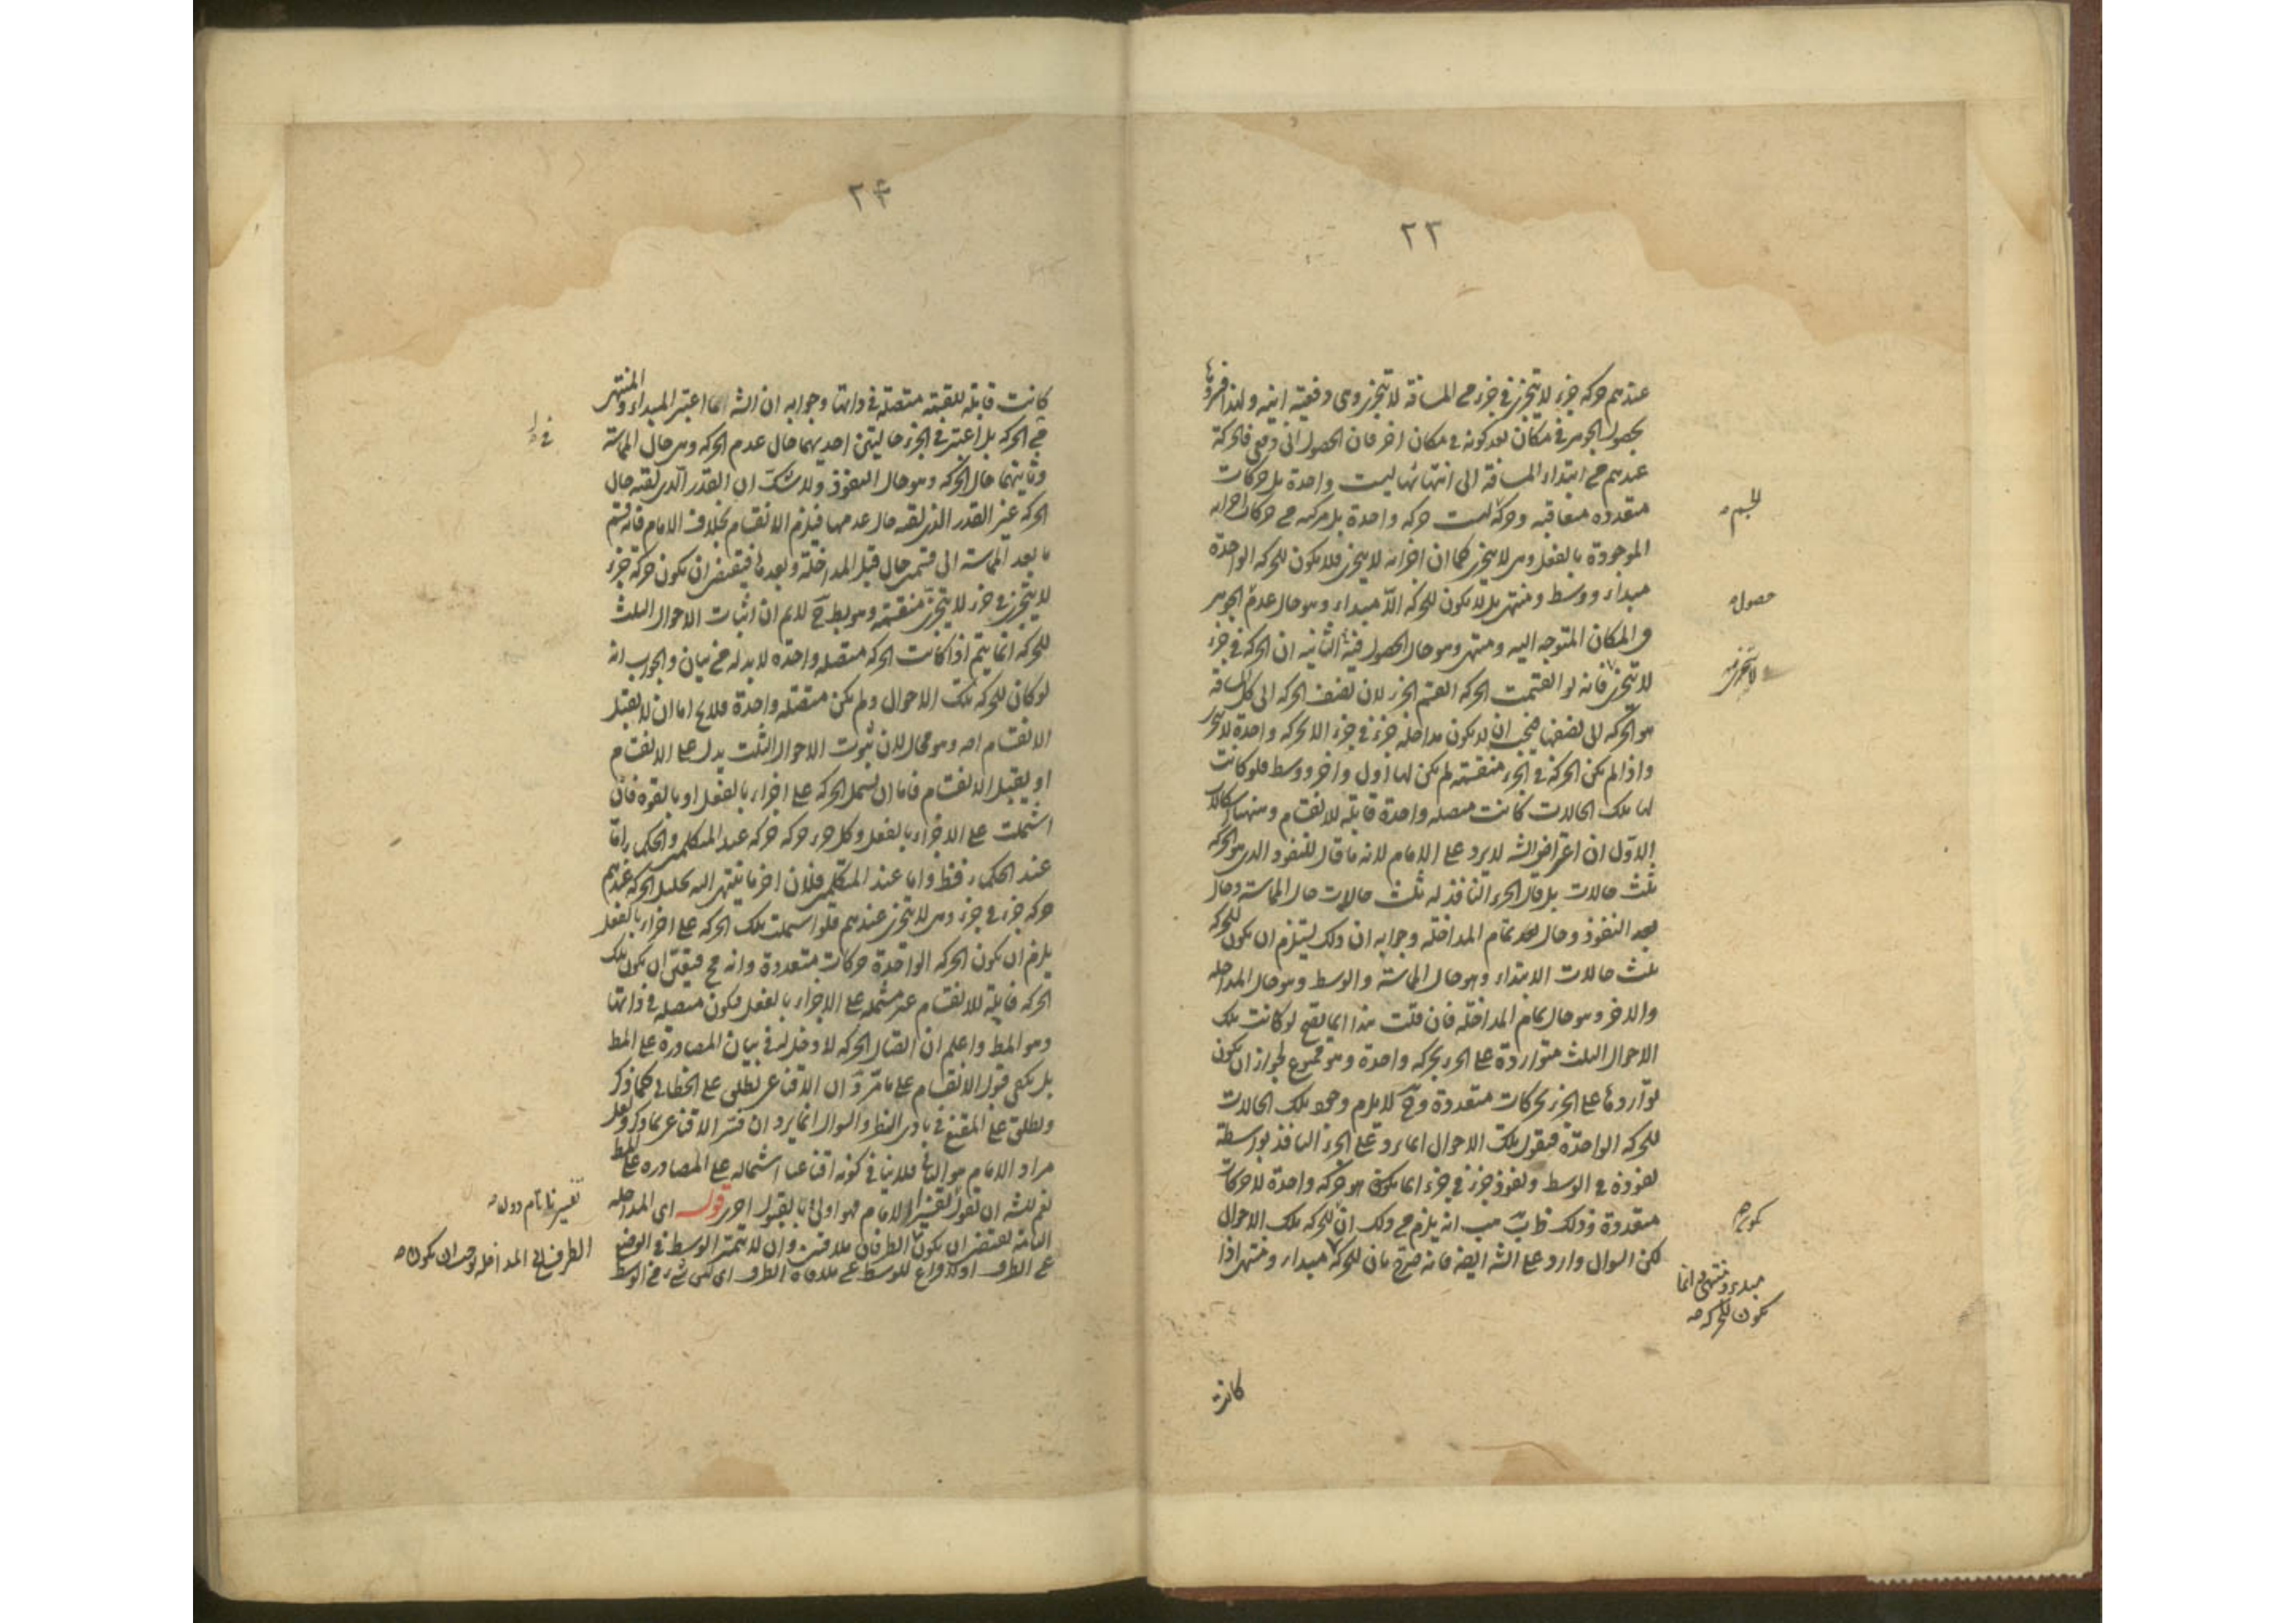 ٢٣
عندهم حركة جزء لا يتجزى في جزء من المسافة لا يتجزى وهى دفعية آنية ولهذا فسروها
بحصول الجوهر في مكان بعد كونه في مكان اخر فان الحصول آنى دفعى فالحركة
عندهم من ابتداء المسافة الى انتهائها ليست واحدة بل حركات
متعددة متعاقبة وحركة ليست حركة واحدة بل مركبه من حركات اجزائه
الجسم
الموجودة بالفعل وهى لا يتجزى كما ان اجزائه لا يتجزى فلا يكون للحركه الواحدة
مبداء ووسط ومنتهى بل لا يكون للحركه الا مبداء وهو حال عدم الجوهر
حصول
في المكان المتوجه اليه ومنتهى وهو حال الحصول فيه الثانية ان الحركة في جزء
لا يتجزى فانه لو انقسمت الحركه انقسم الجزء لان نصف الحركه الى كل المسافة
لا يتجزى
هو الحركه الى نصفها فيجب ان لا يكون مداخلة جزء في جزء الا بحركه واحدة لا يتجزى
واذا لم يكن الحركة في الجزء منقسمة لم يكن لها اول واخر ووسط فلو كانت
لها تلك الحالات كانت متصله واحدة قابلة للانقسام وههنا اسكالات
الاول ان اعتراض الشه لا يرد على الامام لانه ما قال للنفوذ الذى هو الحركه
ثلث حالات بل قال الجزء النافذ له ثلث حالات حال المماسة وحال
بعد النفوذ وحال بعد تمام المداخلة وجوابه ان ذلك يستلزم ان يكون للحركه
ثلث حالات الابتداء وهو حال المماسة والوسط وهو حال المداخله
والاخر وهو حال تمام المداخلة فان قلت هذا انما يصح لو كانت تلك
الاحوال الثلث متواردة على الجزء بحركه واحدة وهو ممنوع لجواز ان يكون
تواردها على الجزء بحركات متعددة وح لا يلزم وجود تلك الحالات
للحركه الواحدة فنقول تلك الاحوال انما يرد على الجزء النافذ بواسطة
نفوذه في الوسط ونفوذ جزء في جزء انما يكون هو حركه واحدة لا حركات
متعددة وذلك ظ ب هب انه يلزم من ذلك ان للحركه تلك الاحوال
لكن السوال وارد على الشه ايضه فانه صرح بان للحركة مبداء ومنتهى اذا
مبدء ومنتهى انما
يكون للحركه
كانت
٢٤
كانت قابلة للقسمة متصلة في ذاتها وجوابه ان الشه ما اعتبر المبداء والمنتهى
في الحركه بل اعتبر في الجزء حاليتين احديهما حال عدم الحركه وهى حال المماسة
وثانيتهما حال الحركه وهو حال النفوذ ولا شك ان القدر الذى لقيه حال
الحركه غير القدر الذى لقيه حال عدمها فيلزم الانقسام بخلاف الامام فانه قسم
ما بعد المماسة الى قسمين حال قبل المداخلة وبعدها فيقتضى ان يكون حركة جزء
لا يتجزى في جزء لا يتجزى منقسمة وهو بط ج لا نم ان اثبات الاحوال الثلث
للحركه انما يتم اذا كانت الحركه متصله واحدة لا بد له من بيان والجواب انه
لو كان للحركه تلك الاحوال ولم يكن متصله واحدة فلا يخ اما ان لا يقبل
الانقسام اصه وهو محال لان ثبوت الاحوال الثلث يدل على الانقسام
او يقبل الانقسام فاما ان يشمل الحركه على اجزاء بالفعل او بالقوه فان
اشتملت على الاجزاء بالفعل وكل جزء حركه حركه عند المتكلمين والحكماء اما
عند الحكماء فظ واما عند المتكلمين فلان اخر ما ينتهى اليه تحليل الحركه عندهم
حركه جزء في جزء وهى لا يتجزى عندهم فلو اشتملت تلك الحركه على اجزاء بالفعل
يلزم ان يكون الحركه الواحدة حركات متعددة وانه مح فبقى ان يكون تلك
الحركه قابلة للانقسام غير مشتمله على الاجزاء بالفعل فيكون متصله في ذاتها
وهو المط واعلم ان اتصال الحركه لا دخل له في بيان المصادرة على المط
بل يكفى قبول الانقسام على ما مر و ان الاقناعى يطلق على الخطابى كما ذكر
ويطلق على المقنع في بادى النظر والسوال انما يرد ان فسر الاقناعى بما ذكره ولعل
مراد الامام هو الثانى فلا ينافى كونه اقناعيا اشتماله على المصادره على المط
نعم للشه ان يقول تفسير الامام فهو اولى بالقبول اجر قوله اى المداخله
تفسيرنا تام دون
التامة يقتضى ان يكون الطرفان ملاقيين وان لا يتميز الوسط في الوضع
الطرف في المداخله يوجب ان يكون
عن الطرف اولا فراغ للوسط عن ملاقاة الطرف اى ليس شئ من الوسط